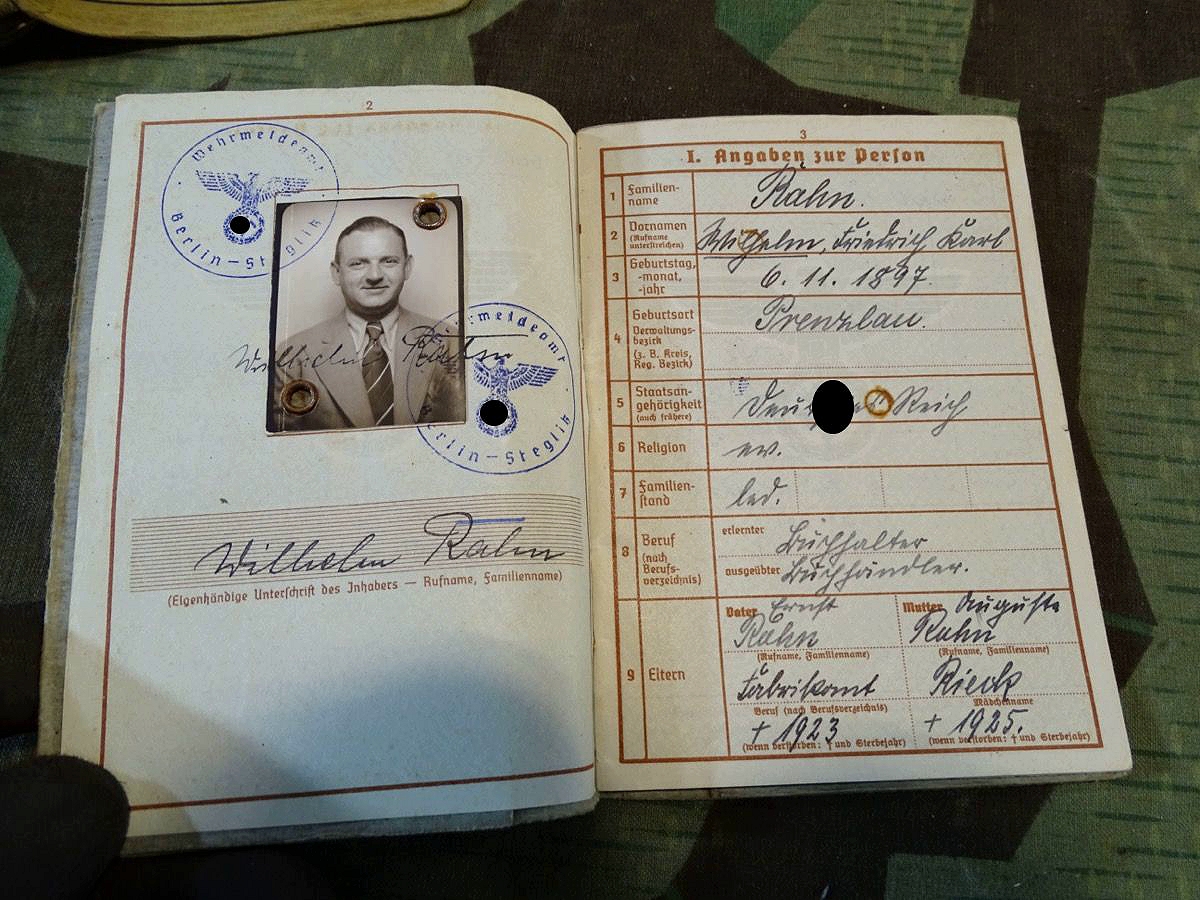 2
Wehrmeldeamt
Berlin-Steglitz
Wehrmeldeamt
Berlin-Steglitz
Wilhelm Rahn
Wilhelm Rahn
(Eigenhändige Unterschrift des Inhabers — Rufname, Familienname)
3
I. Angaben zur Person
1 Familien-
name
Rahn.
2 Vornamen
(Rufname
unterstreichen)
Wilhelm, Friedrich Karl
3 Geburtstag,
-monat,
-jahr
6. 11. 1897.
4 Geburtsort
Verwaltungs-
bezirk
(z. B. Kreis,
Reg. Bezirk)
Prenzlau.
5 Staatsan-
gehörigkeit
(auch frühere)
Reich
6 Religion
ev.
7 Familien-
stand
led.
8 Beruf
(nach
Berufs-
verzeichnis)
erlernter Buchhalter
ausgeübter Buchhändler.
9 Eltern
Vater Ernst
Rahn
(Rufname, Familienname)
Fabrikant
Beruf (nach Berufsverzeichnis)
† 1923
(wenn verstorben: † und Sterbejahr)
Mutter Auguste
Rahn
(Rufname, Familienname)
Rieck
Mädchenname
† 1925.
(wenn verstorben: † und Sterbejahr)